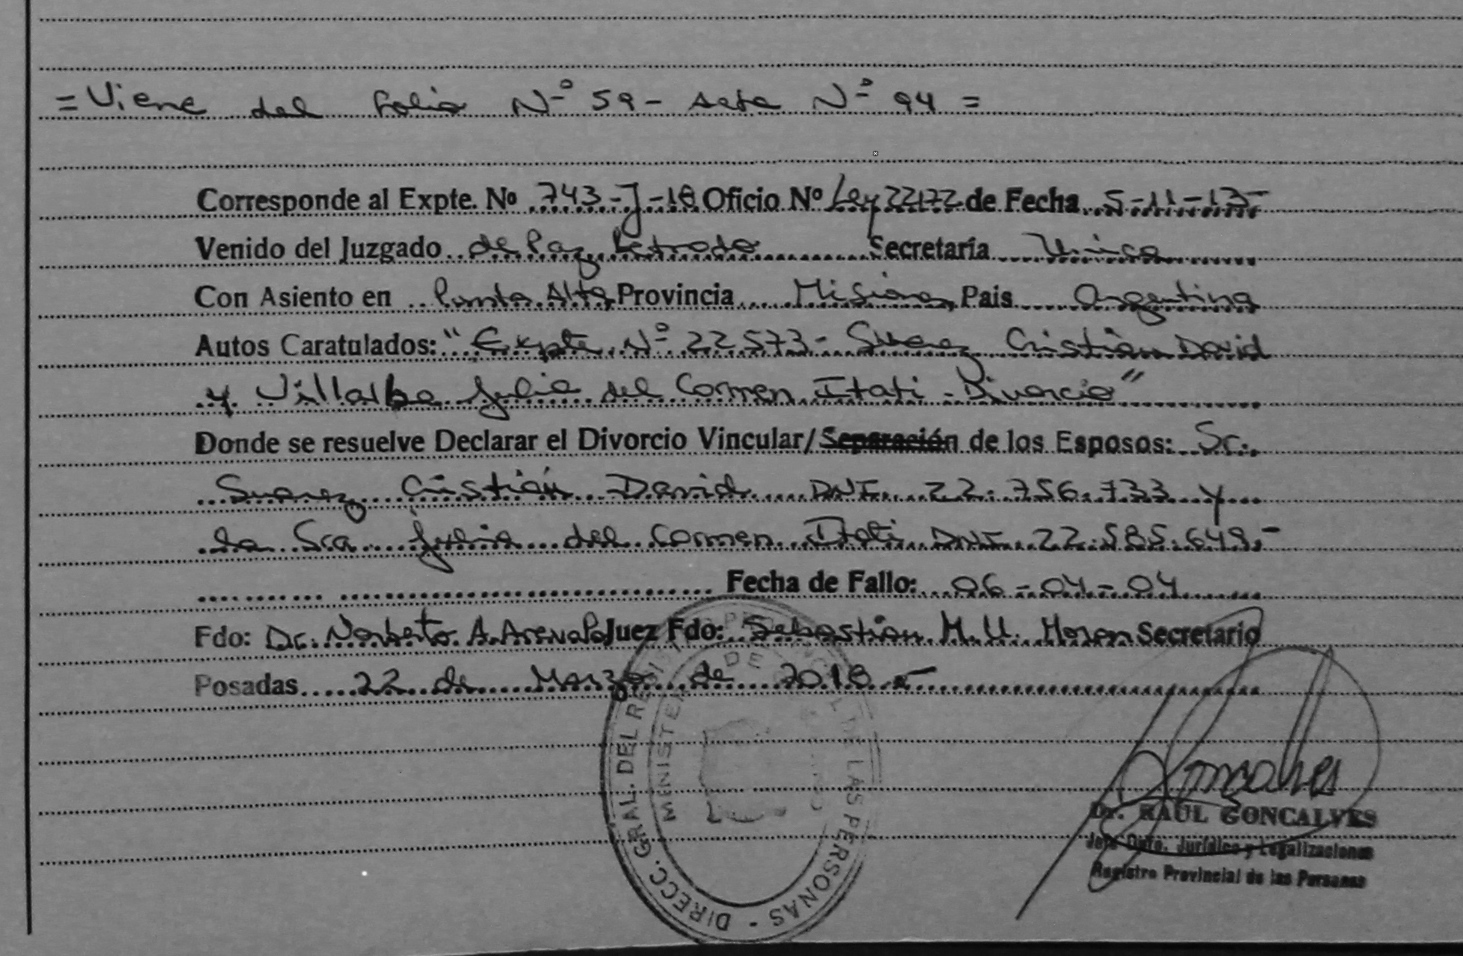 = Viene del folio Nº 59 - acta Nº 94 =
Corresponde al Expte. Nº 743-J-18 Oficio Nº Ley 22172 de Fecha 5-11-13-
Venido del Juzgado de Paz Letrado Secretaría Unica
Con Asiento en Punta Alta Provincia Misiones Pais Argentina
Autos Caratulados: "Expte Nº 22573- Suarez Cristian David
y Villalba Julia del Carmen Itati - Divorcio"
Donde se resuelve Declarar el Divorcio Vincular/Separación de los Esposos: Sr.
Suarez Cristián David DNI 22.756.733 y
la Sra Julia del Carmen Itati DNI 22.585.649.-
Fecha de Fallo: 06-04-04
Fdo: Dr. Norberto A. Arevalo Juez Fdo: Sebastián M. U. Moran Secretario
Posadas 22 de Marzo de 2018.-
DIRECC. GRAL. DEL REGIST PROVINCIAL DE LAS PERSONAS -
MINISTE DE
Goncalves
Dr. RAUL GONCALVES
Jefe Dpto. Jurídico y Legalizaciones
Registro Provincial de las Personas